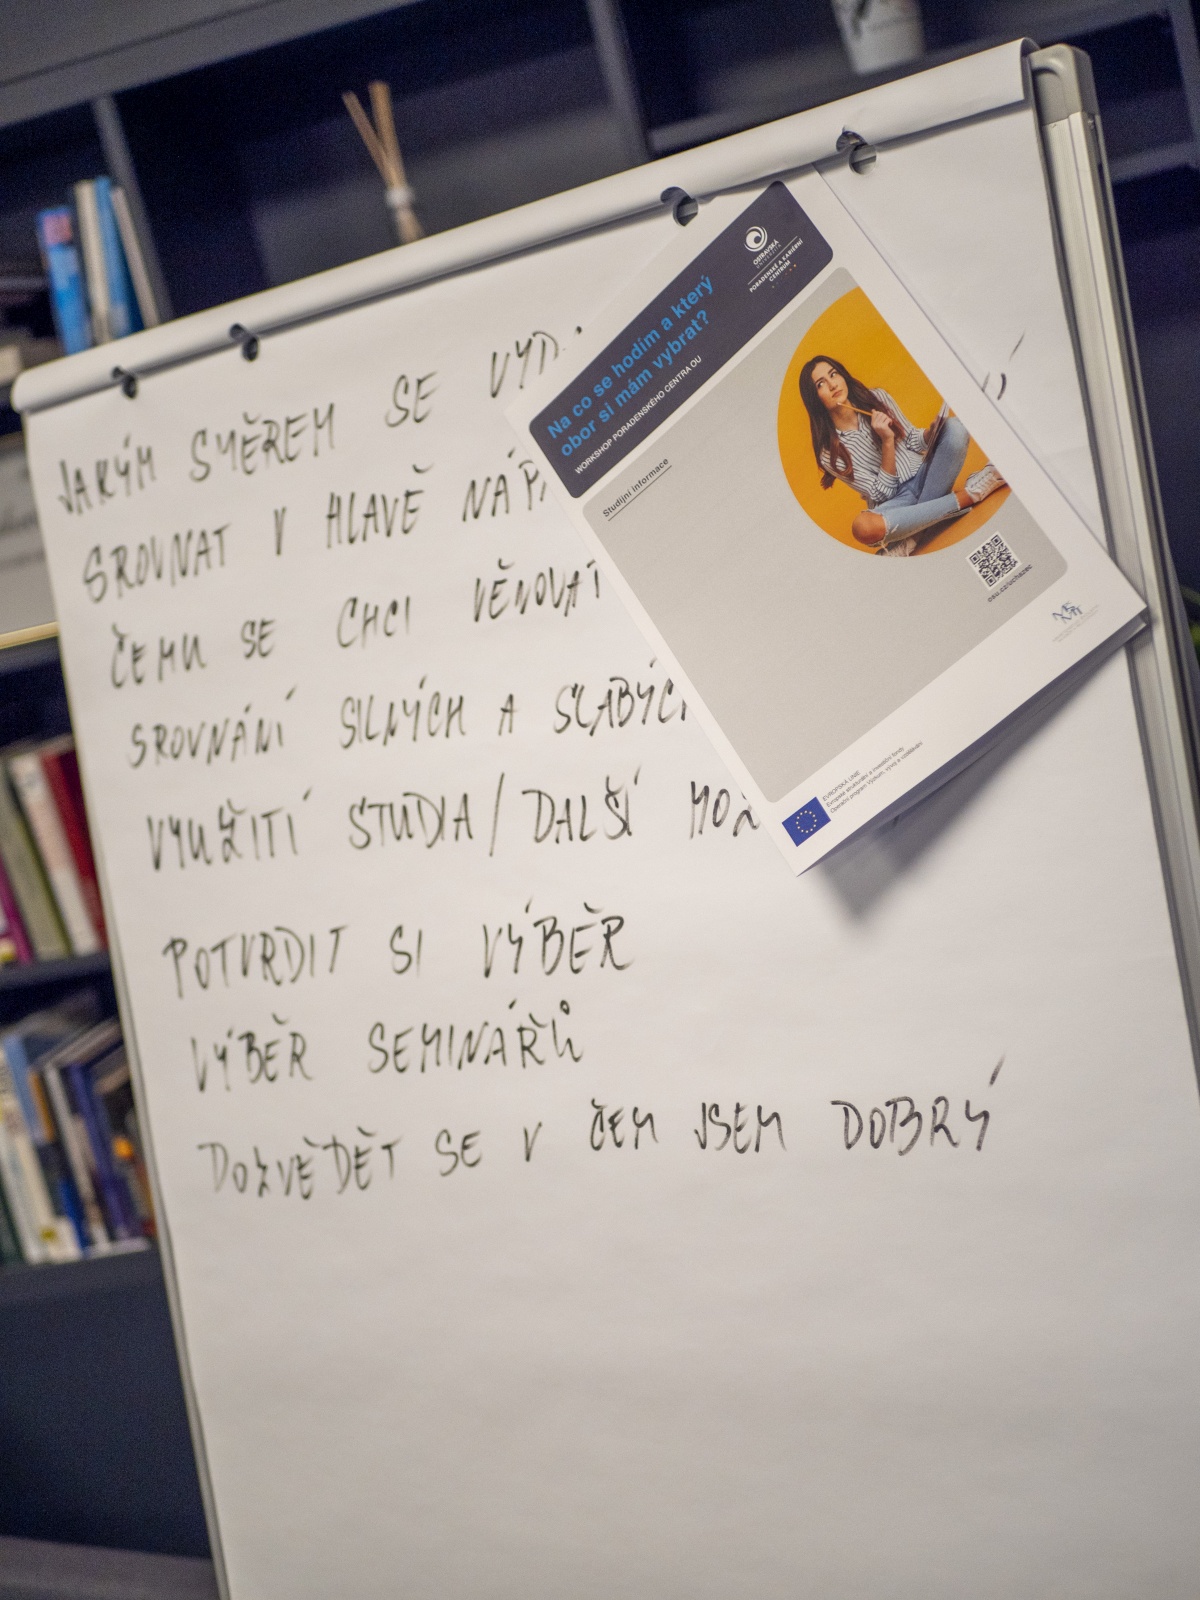 JAKÝM SMĚREM SE
SROVNAT V HLAVĚ
ČEMU SE CHCI VĚNOVAT
SROVNÁNÍ SILNÝCH A SLABÝCH
VYUŽITÍ STUDIA / DALŠÍ
POTVRDIT SI VÝBĚR
VÝBĚR SEMINÁŘŮ
DOZVĚDĚT SE V ČEM JSEM DOBRÝ
OSTRAVSKÁ
UNIVERZITA
PORADENSKÉ A KARIÉRNÍ
CENTRUM
Na co se hodím a který
obor si mám vybrat?
WORKSHOP PORADENSKÉHO CENTRA OU
Studijní informace
osu.cz/uchazec
EVROPSKÁ UNIE
Evropské strukturální a investiční fondy
Operační program Výzkum, vývoj a vzdělávání